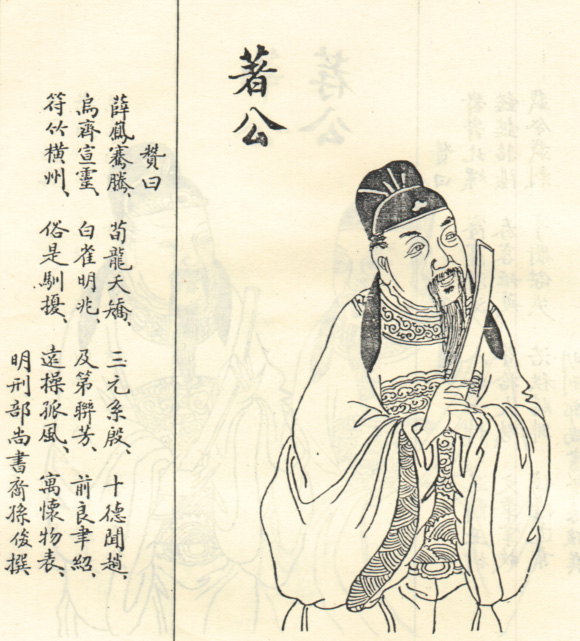 著公
贊曰
薛鳳騫騰、荀龍天矯、三元系殷、十德聞趙、
烏齊宣靈、白雀明兆、及第聯芳、前良聿紹、
符竹橫州、俗是馴擾、遠操孤風、寓懷物表、
明刑部尚書裔孫俊撰